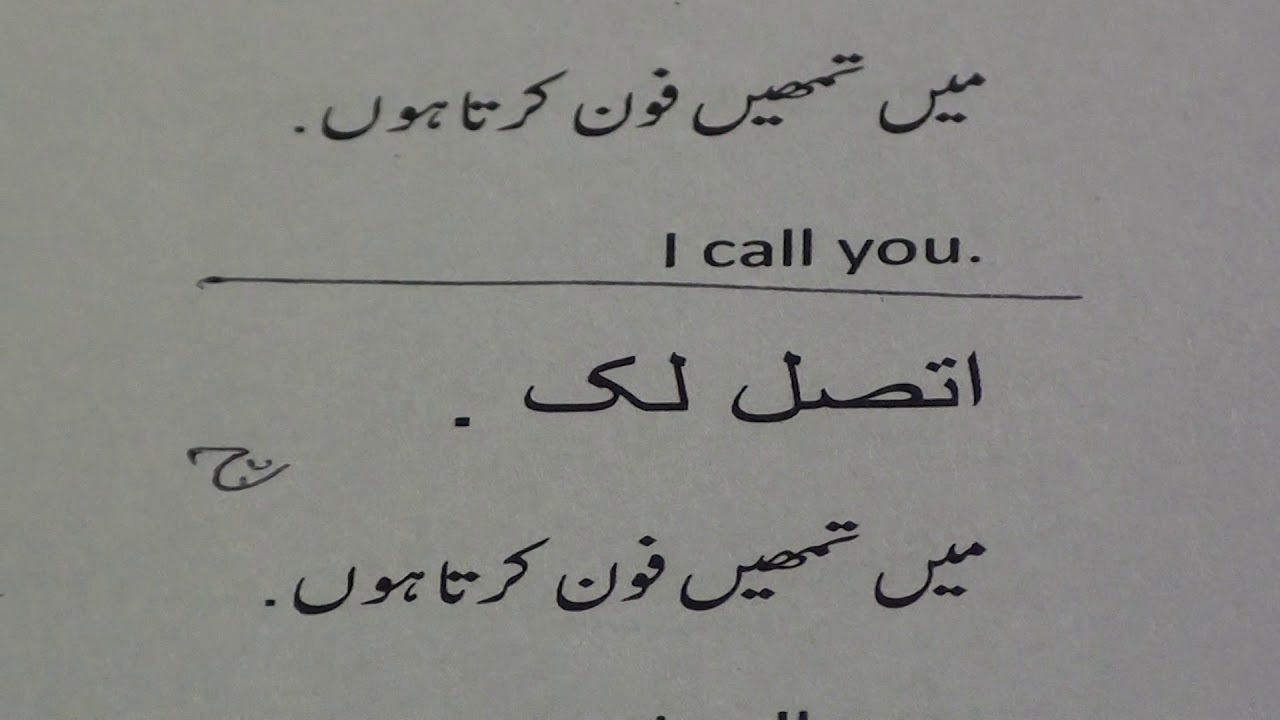 میں تمھیں فون کرتا ہوں.
I call you.
اتصل لک .
میں تمھیں فون کرتا ہوں.